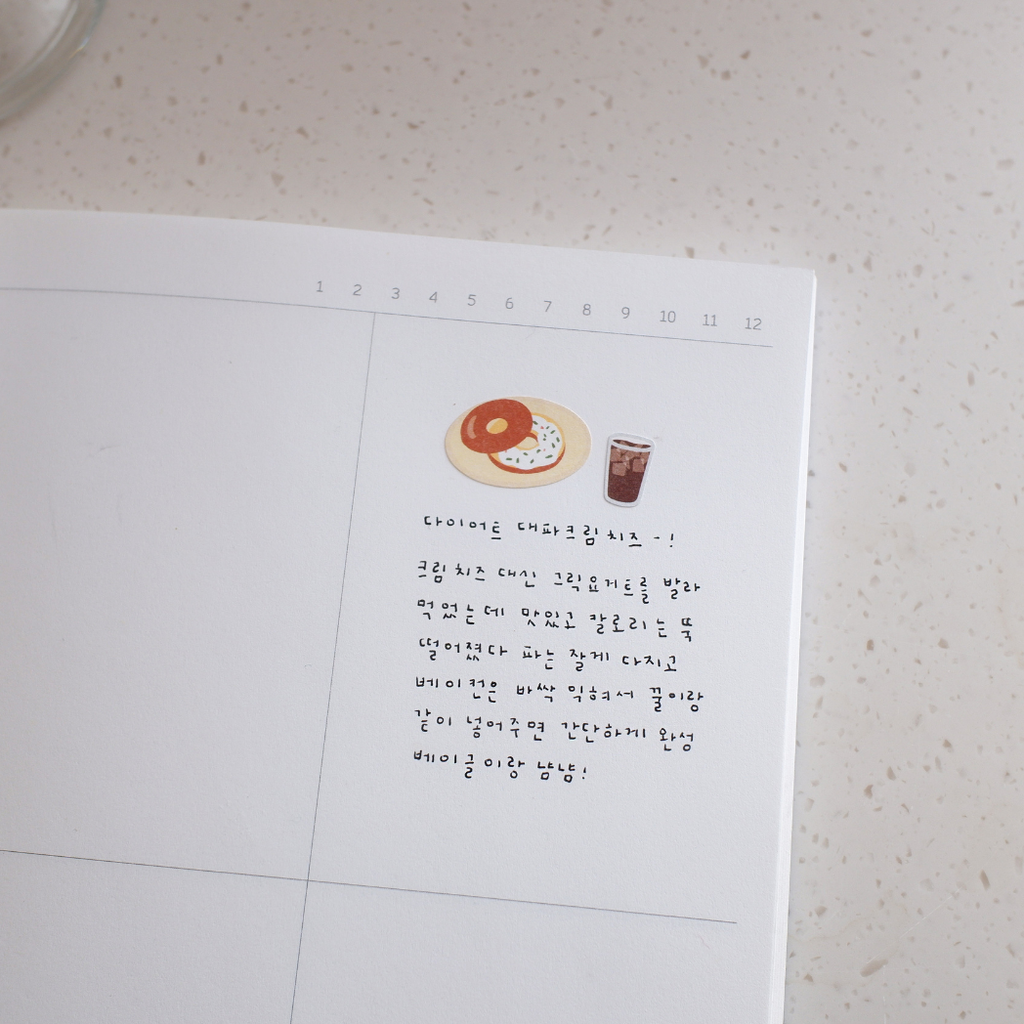 1 2 3 4 5 6 7 8 9 10 11 12
다이어트 대파크림치즈 - !
크림치즈 대신 그릭요거트를 발라
먹었는데 맛있고 칼로리는 뚝
떨어졌다 파는 잘게 다지고
베이컨은 바싹 익혀서 꿀이랑
같이 넣어주면 간단하게 완성
베이글이랑 냠냠!